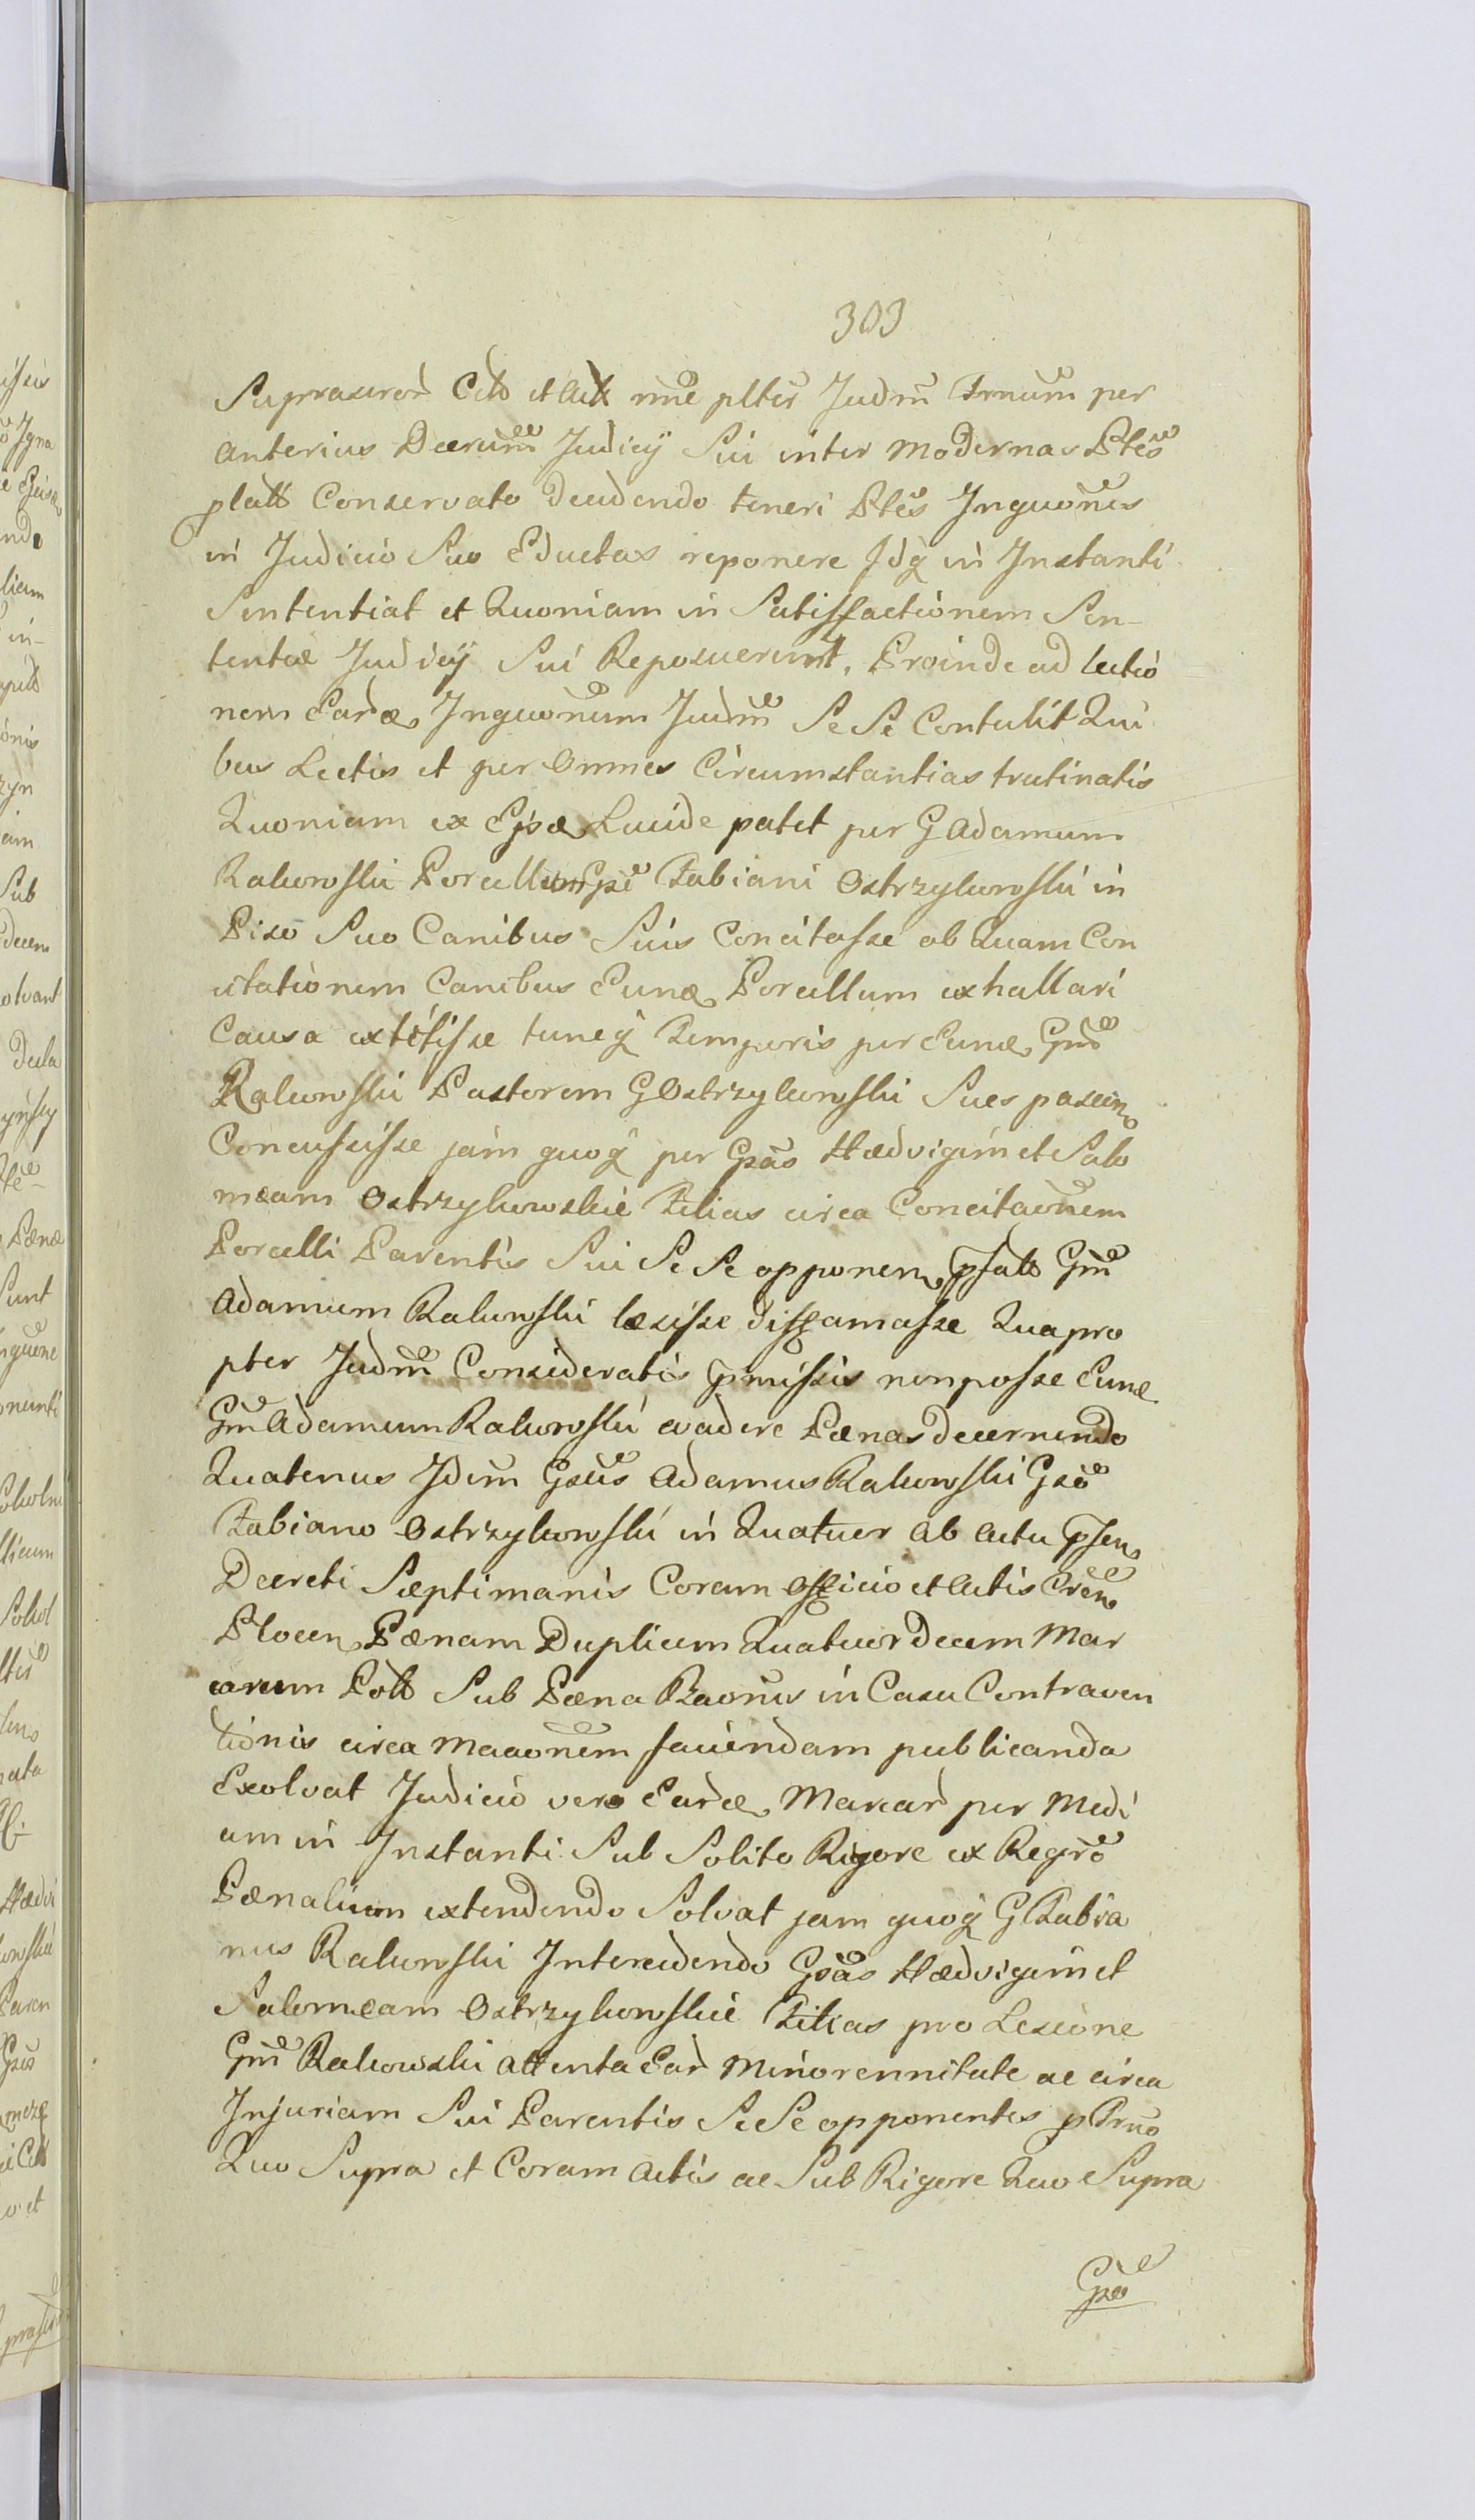 303
Suprascrod Citŏ et Actŏ rme plter Judm Trnum per
anterius Decrum Judicÿ Sui inter modernas Ptes
platŏ Conservato Decidendo teneri Ptes Inquones
in Judicio Suo Eductas reponere Jdq in Instanti
Sententiat et Quoniam in Satisffactionem Sen-
tentiæ Judicÿ Sui Reposuerunt, Proinde ad lectio
nem Earde Inquonum Judm Se Se Contulit Qui
bus Lectis et per Omnes Circumstantias trutinatis
Quoniam ex Ejsde Lucide patet per G Adamum
Rakowski Porcellum Gsi Fabiani Ostrzykowski in
Piso Suo Canibus Suis Concitasse ob Quam Con
citationem Canibus Eunde Porcellum exhallari
Causa extitisse tuncq Temporis per Eunde Gm
Rakowski Pastorem G Ostrzykowski Sues pascen
Concussisse jam quoq per Gsas Hædvigim et Salo
meam Ostrzykowskie Filias circa Concitaonem
Porcelli Parentis Sui Se Se opponen psatŏ Gm
Adamum Rakowski læsisse diffamasse Quapro
pter Judm Consideratis pmissis non posse Eunde
Gm Adamum Rakowski evadere Pænas decernendo
Quatenus Jdem Gsus Adamus Rakowski Gso
Fabiano Ostrzykowski in Quatuor ab actu psen
Decreti Sæptimanis Coram Officio et Actis Cren
Plocen Pænam Duplicem Quatuordecem Mar
carum Poltŏ Sub Pæna Baonis in Casu Contraven
tionis circa Macaonem faciendam publicanda
Exolvat Judicio vero Earde Marcard per Medi
um in Instanti Sub Solito Rigore ex Regro
Pænalium extendendo Solvat jam quoq G Fabia
nus Rakowski Intercedendo Gsas Hædvigim et
Salomeam Ostrzykowskie Filias pro Lesione
Gm Rakowski attenta Eard Minorennitate ac circa
Injuriam Sui Parentis Se Se opponentes p Trno
Quo Supra et Coram Actis ac Sub Rigore Quo Supra
Gso